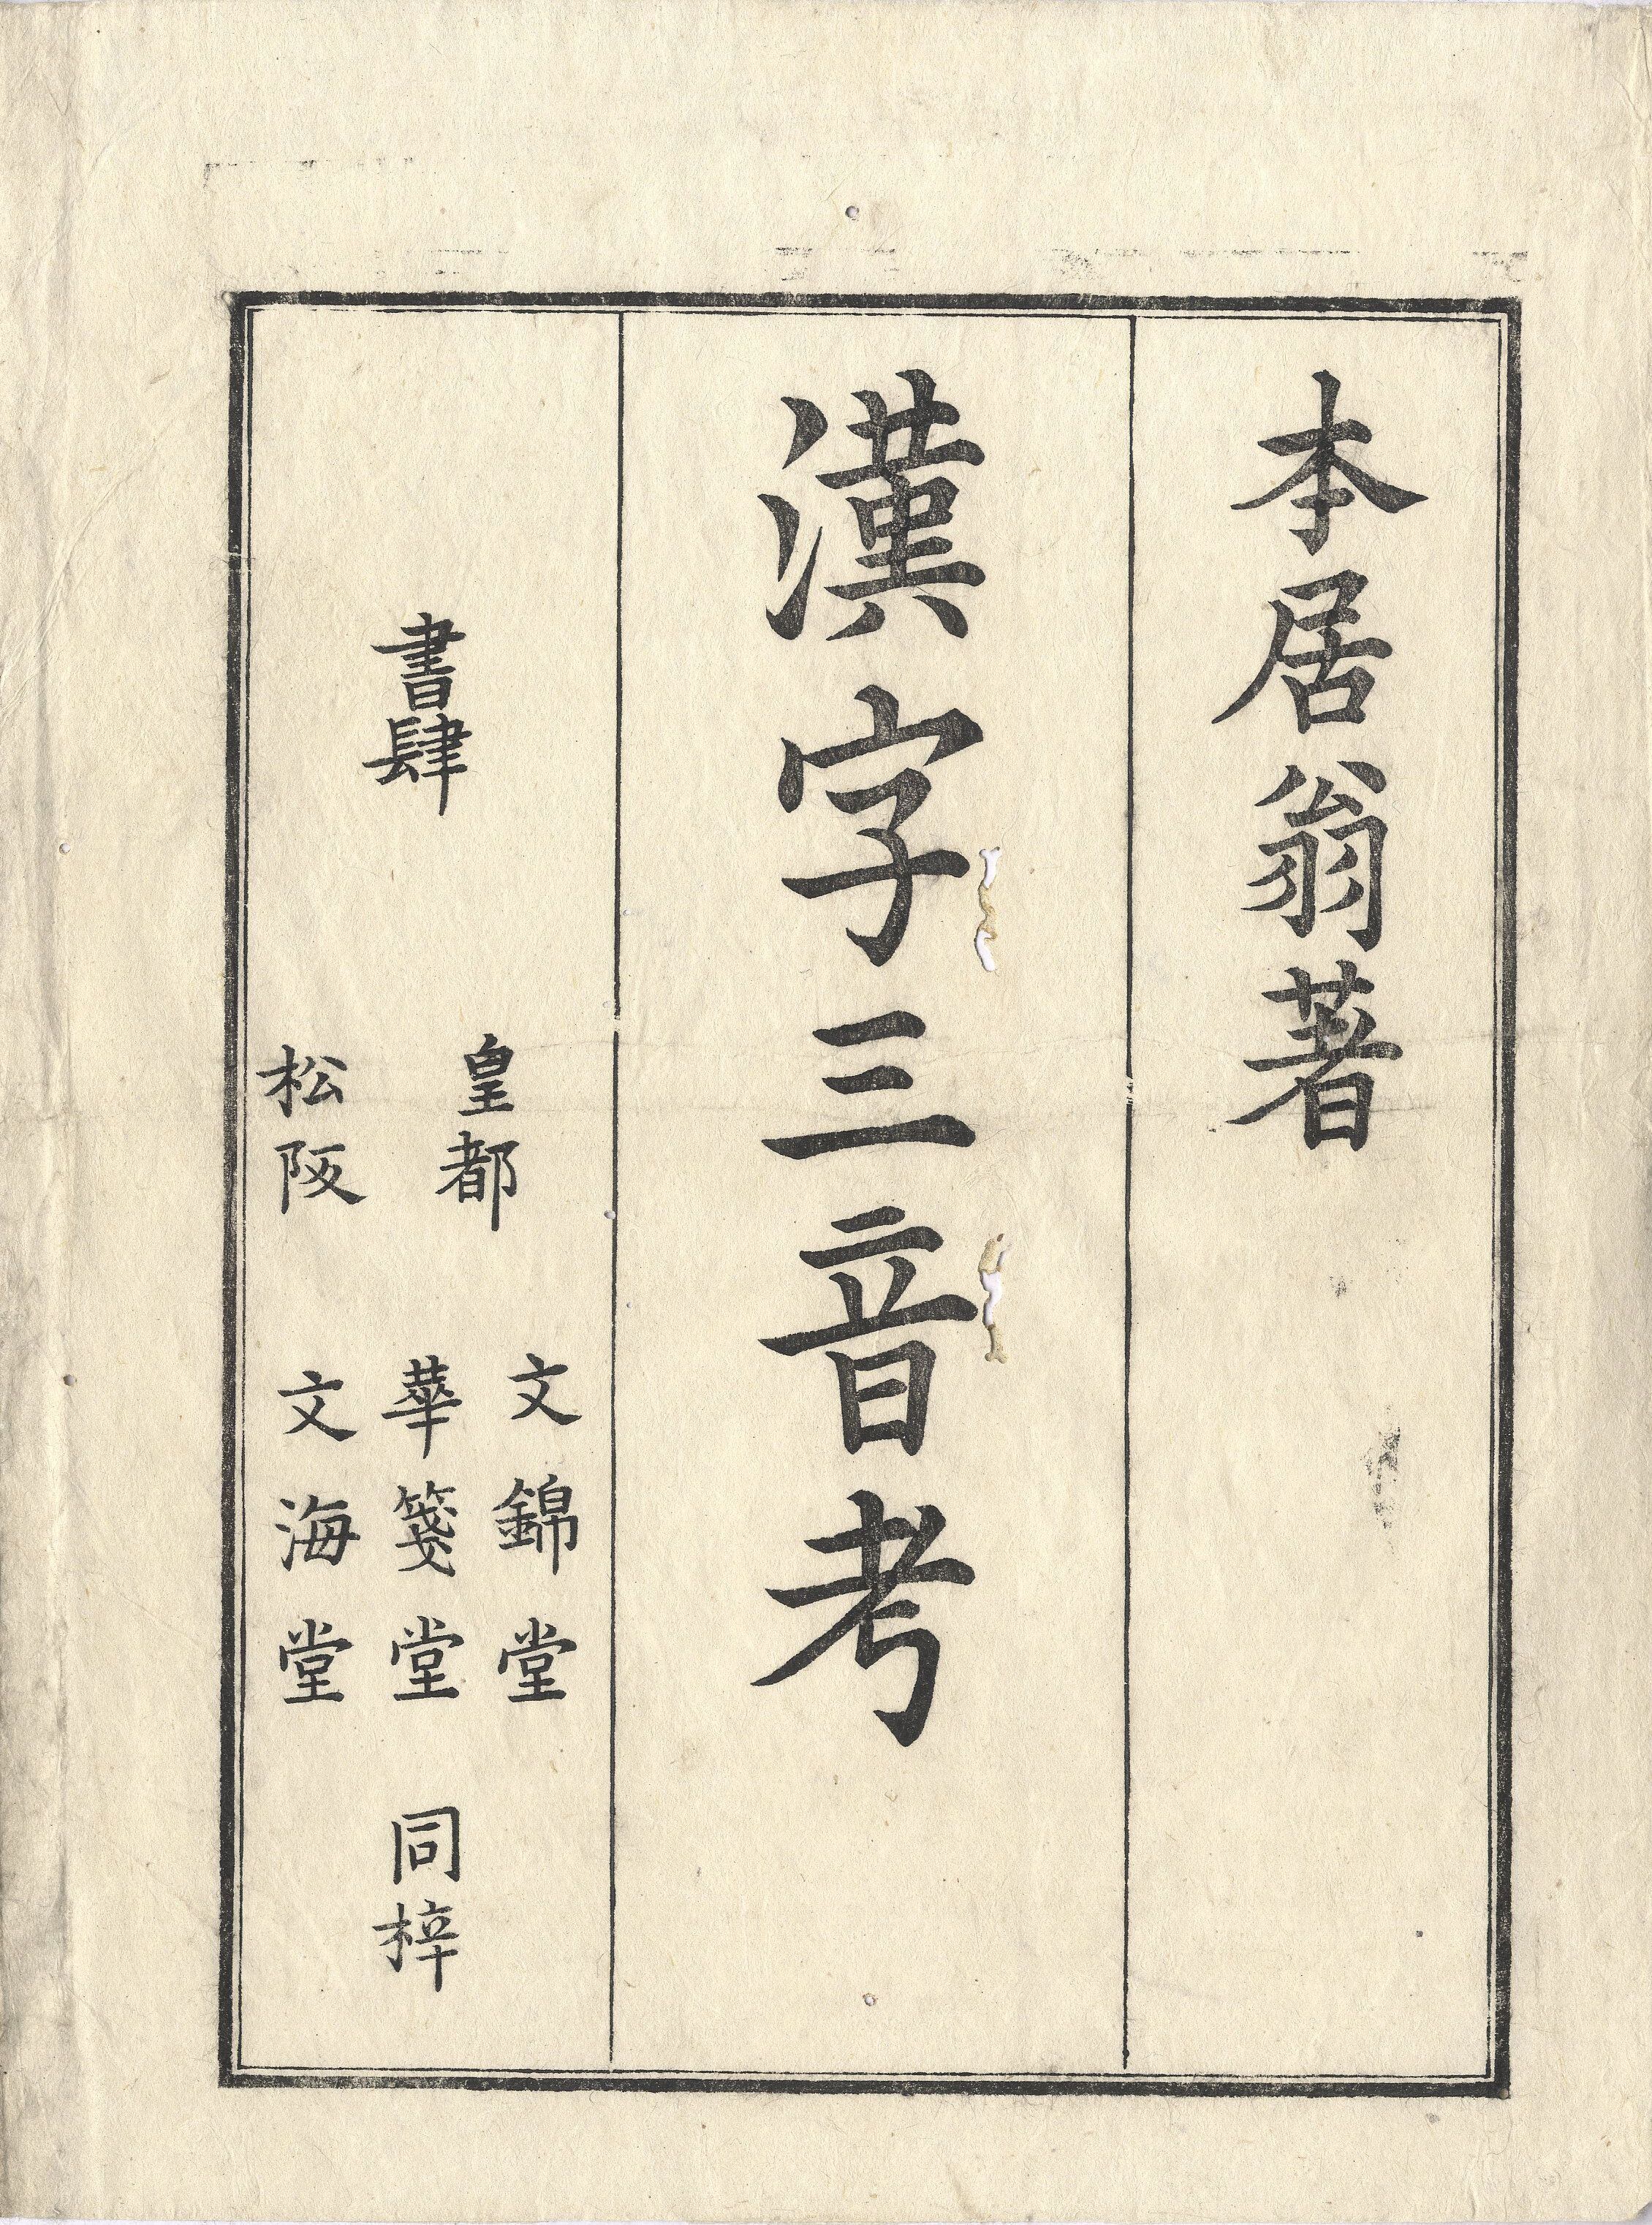 本居翁著
漢字三音考
書肆
皇都
松阪
文錦堂
華箋堂
文海堂
同梓